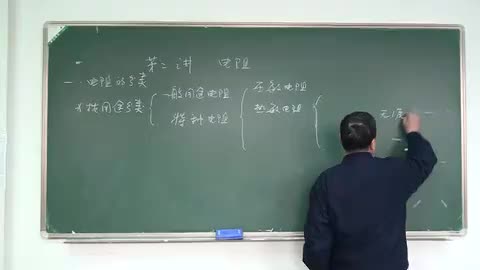 第二讲 电阻
一、电阻的分类
按用途分类
一般用途电阻
特种电阻
压敏电阻
热敏电阻